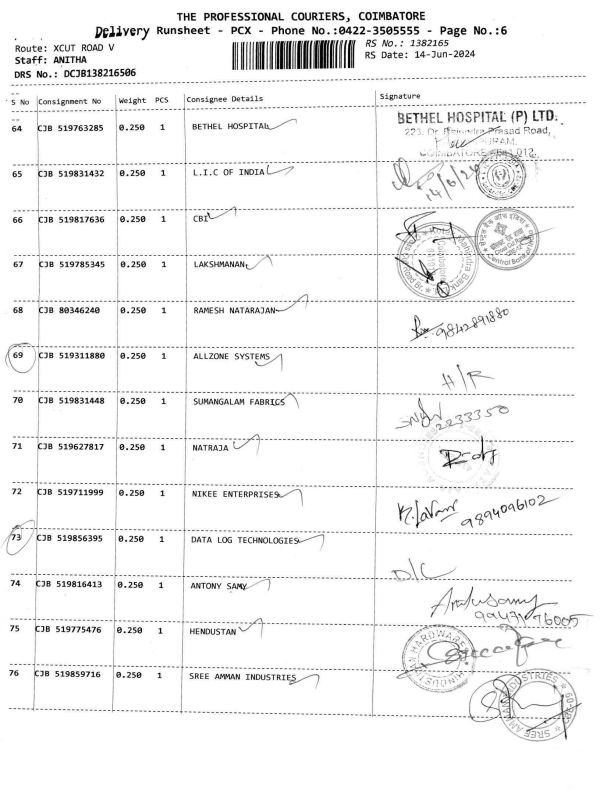 THE PROFESSIONAL COURIERS, COIMBATORE
Delivery Runsheet - PCX - Phone No.:0422-3505555 - Page No.:6
Route: XCUT ROAD V
RS No.: 1382165
Staff: ANITHA
RS Date: 14-Jun-2024
DRS No.: DCJB138216506
S No Consignment No Weight PCS Consignee Details Signature
64 CJB 519763285 0.250 1 BETHEL HOSPITAL
BETHEL HOSPITAL (P) LTD.
223, Dr. Rajendra Prasad Road,
65 CJB 519831432 0.250 1 L.I.C OF INDIA
14/6/24
66 CJB 519817636 0.250 1 CBI
Central Bank of India
67 CJB 519785345 0.250 1 LAKSHMANAN
68 CJB 80346240 0.250 1 RAMESH NATARAJAN
9842891880
69 CJB 519311880 0.250 1 ALLZONE SYSTEMS
H/R
70 CJB 519831448 0.250 1 SUMANGALAM FABRICS
2233350
71 CJB 519627817 0.250 1 NATRAJA
72 CJB 519711999 0.250 1 NIKEE ENTERPRISES
9894096102
73 CJB 519856395 0.250 1 DATA LOG TECHNOLOGIES
D/C
74 CJB 519816413 0.250 1 ANTONY SAMY
75 CJB 519775476 0.250 1 HENDUSTAN
HINDUSTAN HARDWARES
76 CJB 519859716 0.250 1 SREE AMMAN INDUSTRIES
SREE AMMAN INDUSTRIES